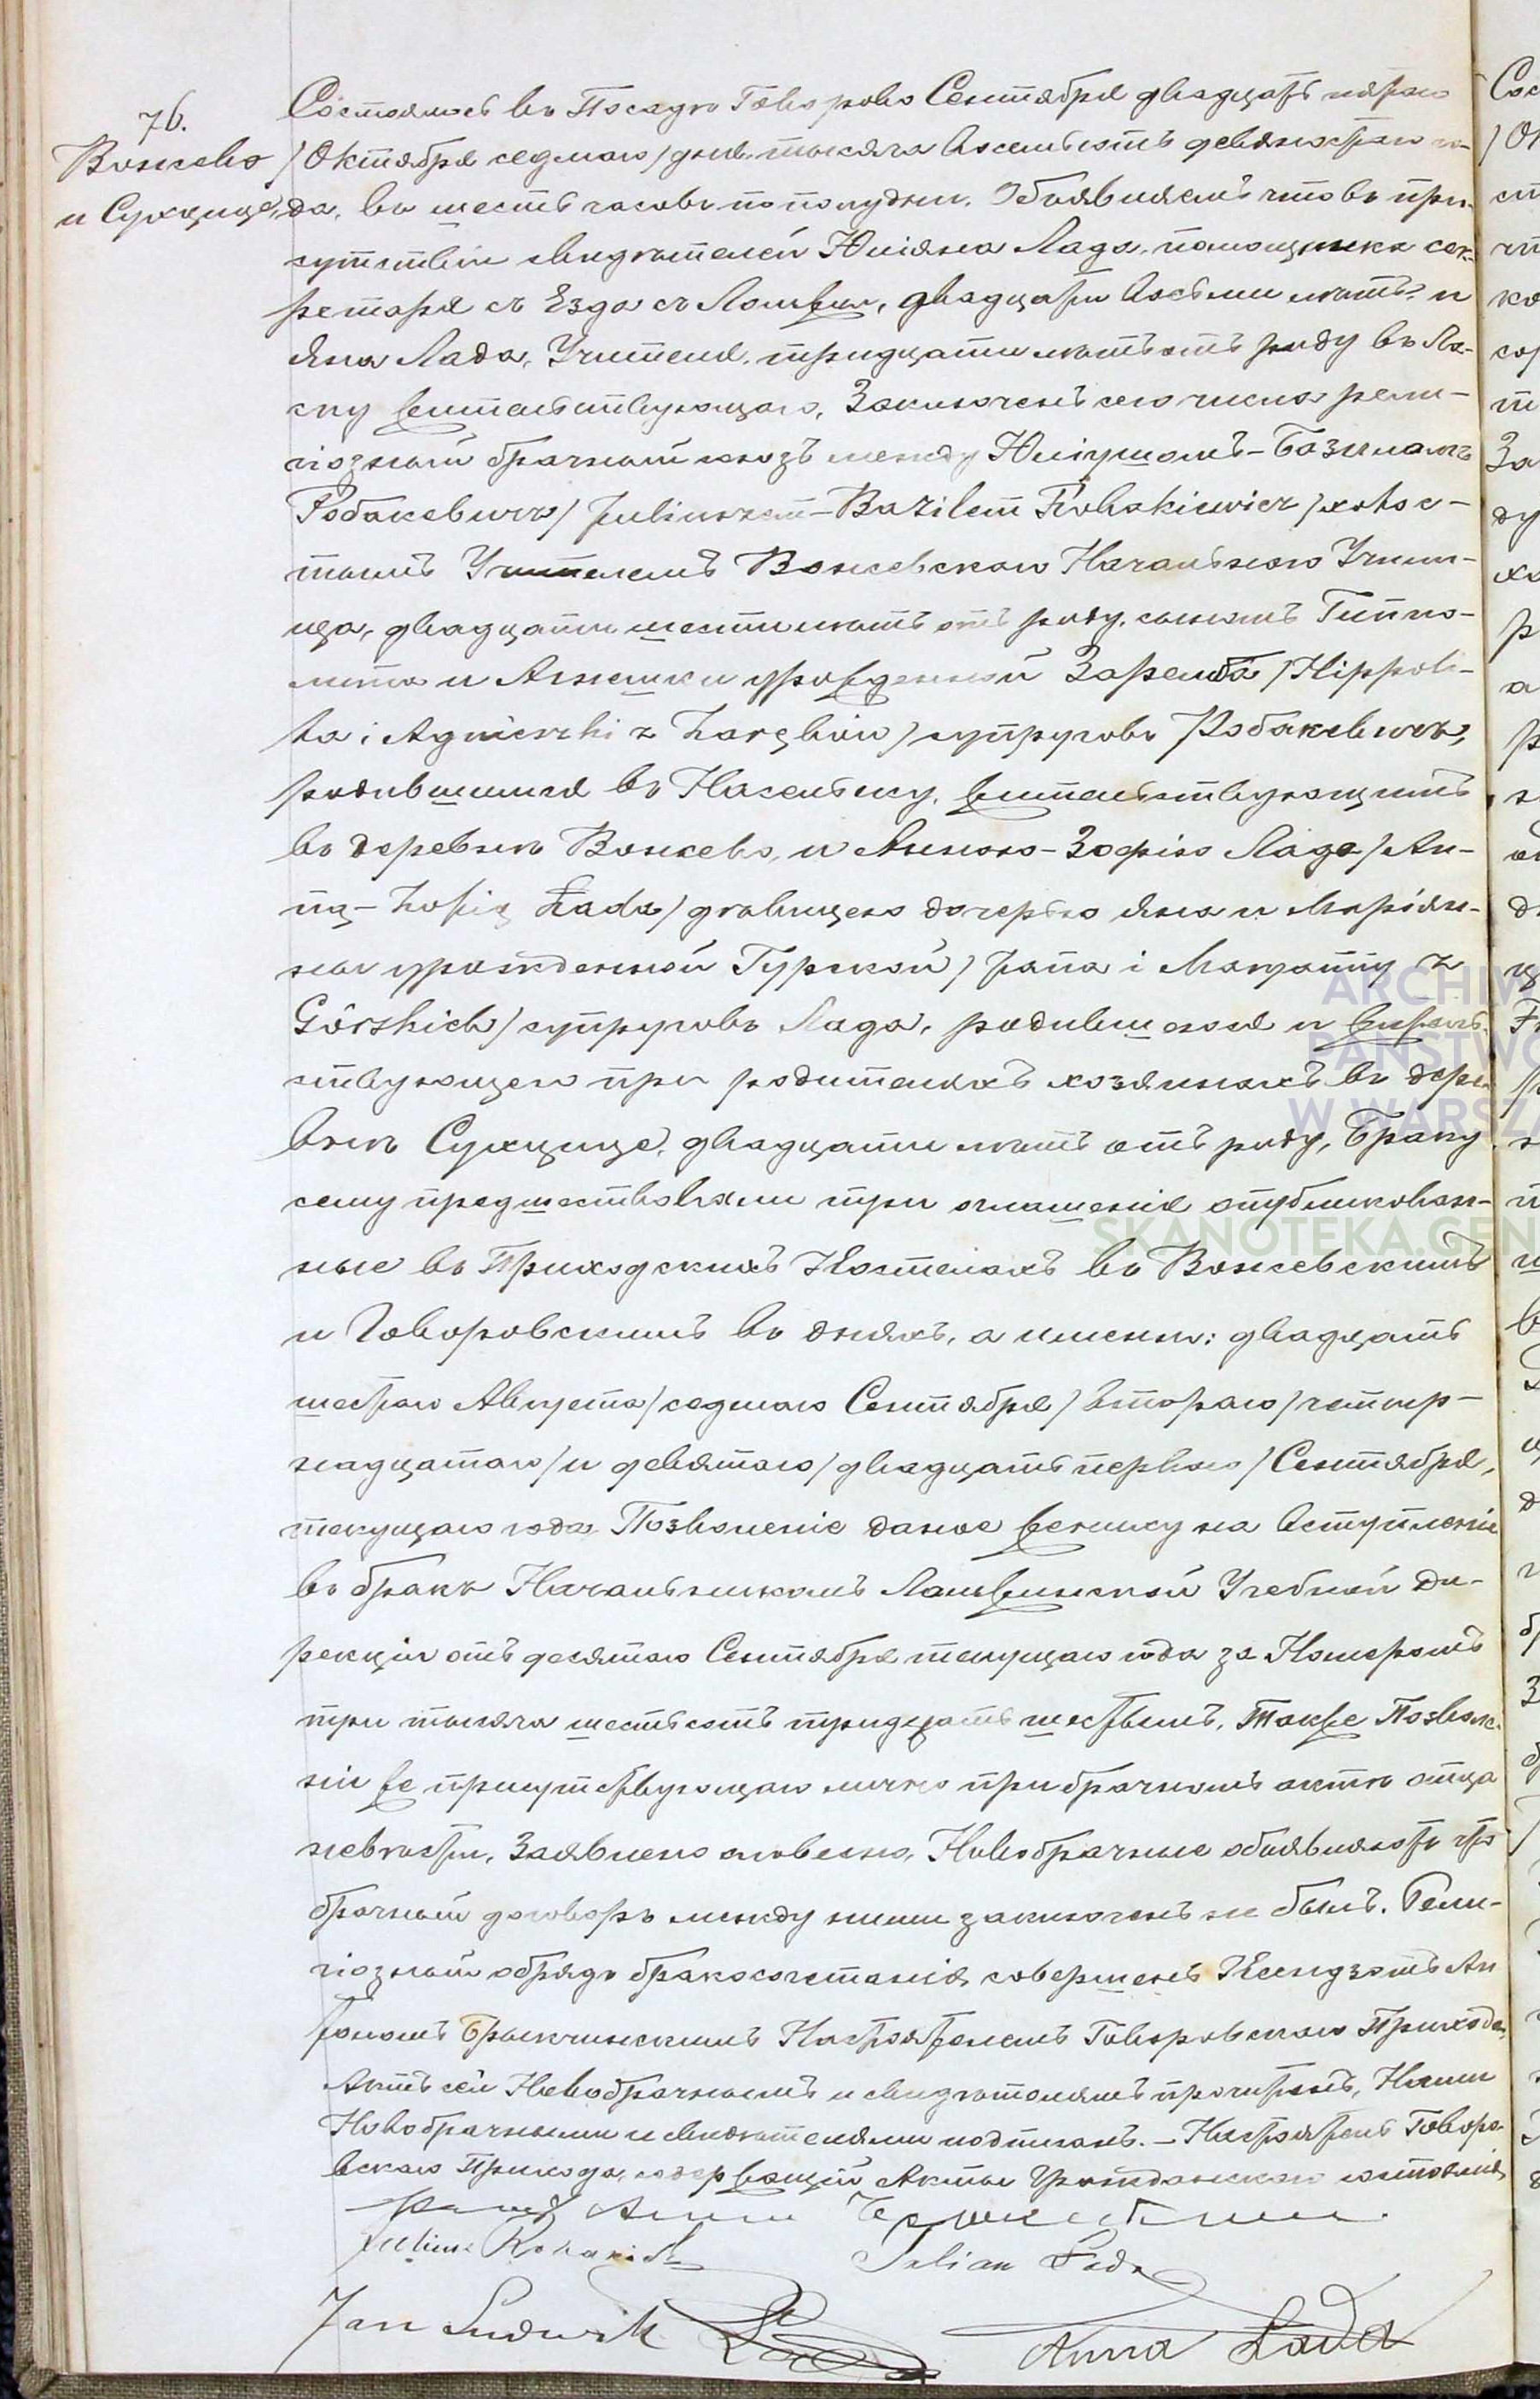 76.
Вонжево
и Сухцице,
Состоялось въ Посадѣ Говорово Сентября двадцать пятаго
/Октября седьмаго/ дня, тысяча восемьсотъ девяностаго го-
да, въ шесть часовъ по полудни. Объявляемъ что въ при-
сутствіи свидѣтелей Юліяна Лада, помощника сек-
ретаря съ Езда съ Ломжи, двадцати восьми лѣтъ, и
Яна Лада, Учителя, тридцати лѣтъ отъ роду въ
жительствующаго, Заключенъ сего числа рели-
гіозный брачный союзъ между Юліушомъ-Базиломъ
Робакевичъ /Juliuszem-Bazilem Robakiewicz/ холос-
тымъ Учителемъ Вонжевскаго Начальнаго Учили-
ща, двадцати шести лѣтъ отъ роду, сыномъ Гиппо-
лита и Агнешки урожденной Заремба /Hippoli-
ta i Agnieszki z Zarębów/ супруговъ Робакевичъ,
родившимся въ Насельску, жительствующимъ
въ деревнѣ Вонжево, и Анною-Зофіею Лада /An-
ną-Zofią Łada/ дѣвицею дочерью Яна и Маріян-
ны урожденной Гурской /Jana i Maryanny z
Górskich/ супруговъ Лада, родившеюся и житель-
ствующею при родителяхъ хозяинахъ въ дере-
внѣ Сухцице, двадцати лѣтъ отъ роду, Браку
сему предшествовали три оглашенія опубликован-
ные въ Приходскихъ Костелахъ въ Вонжевскимъ
и Говоровскимъ въ дняхъ, а именно: двадцать
шестаго Августа /седмаго Сентября/ втораго /четыр-
надцатаго/ и девятаго /двадцать перваго/ Сентября,
текущаго года. Позволеніе даное жениху на вступленіе
въ бракъ Начальникомъ Ломжинской Учебной Ди-
рекціи отъ десятаго Сентября текущаго года за Номеромъ
три тысяча шестьсотъ тридцать шестымъ, Также Позволе-
ніе присутствующаго лично при брачномъ актѣ отца
невѣсты, Заявлено словесно, Новобрачные объявляютъ что
брачный договоръ между ними заключенъ не былъ. Рели-
гіозный обрядъ бракосочетанія совершенъ Ксендзомъ Ан
тономъ Брыкчинскимъ Настоятелемъ Говоровскаго Прихода,
Актъ сей Новобрачнымъ и свидѣтелямъ прочитанъ, Нами
Новобрачными и свидѣтелями подписанъ. – Настоятель Говоро-
вскаго Прихода, содержащій Акты Гражданскаго состоянія,
Juliusz Robakiewicz
Julian Łada
Jan Ludwik Łada
Anna Łada
Сос
ARCHIW
PAŃSTWO
W WARSZA
SKANOTEKA.GEN